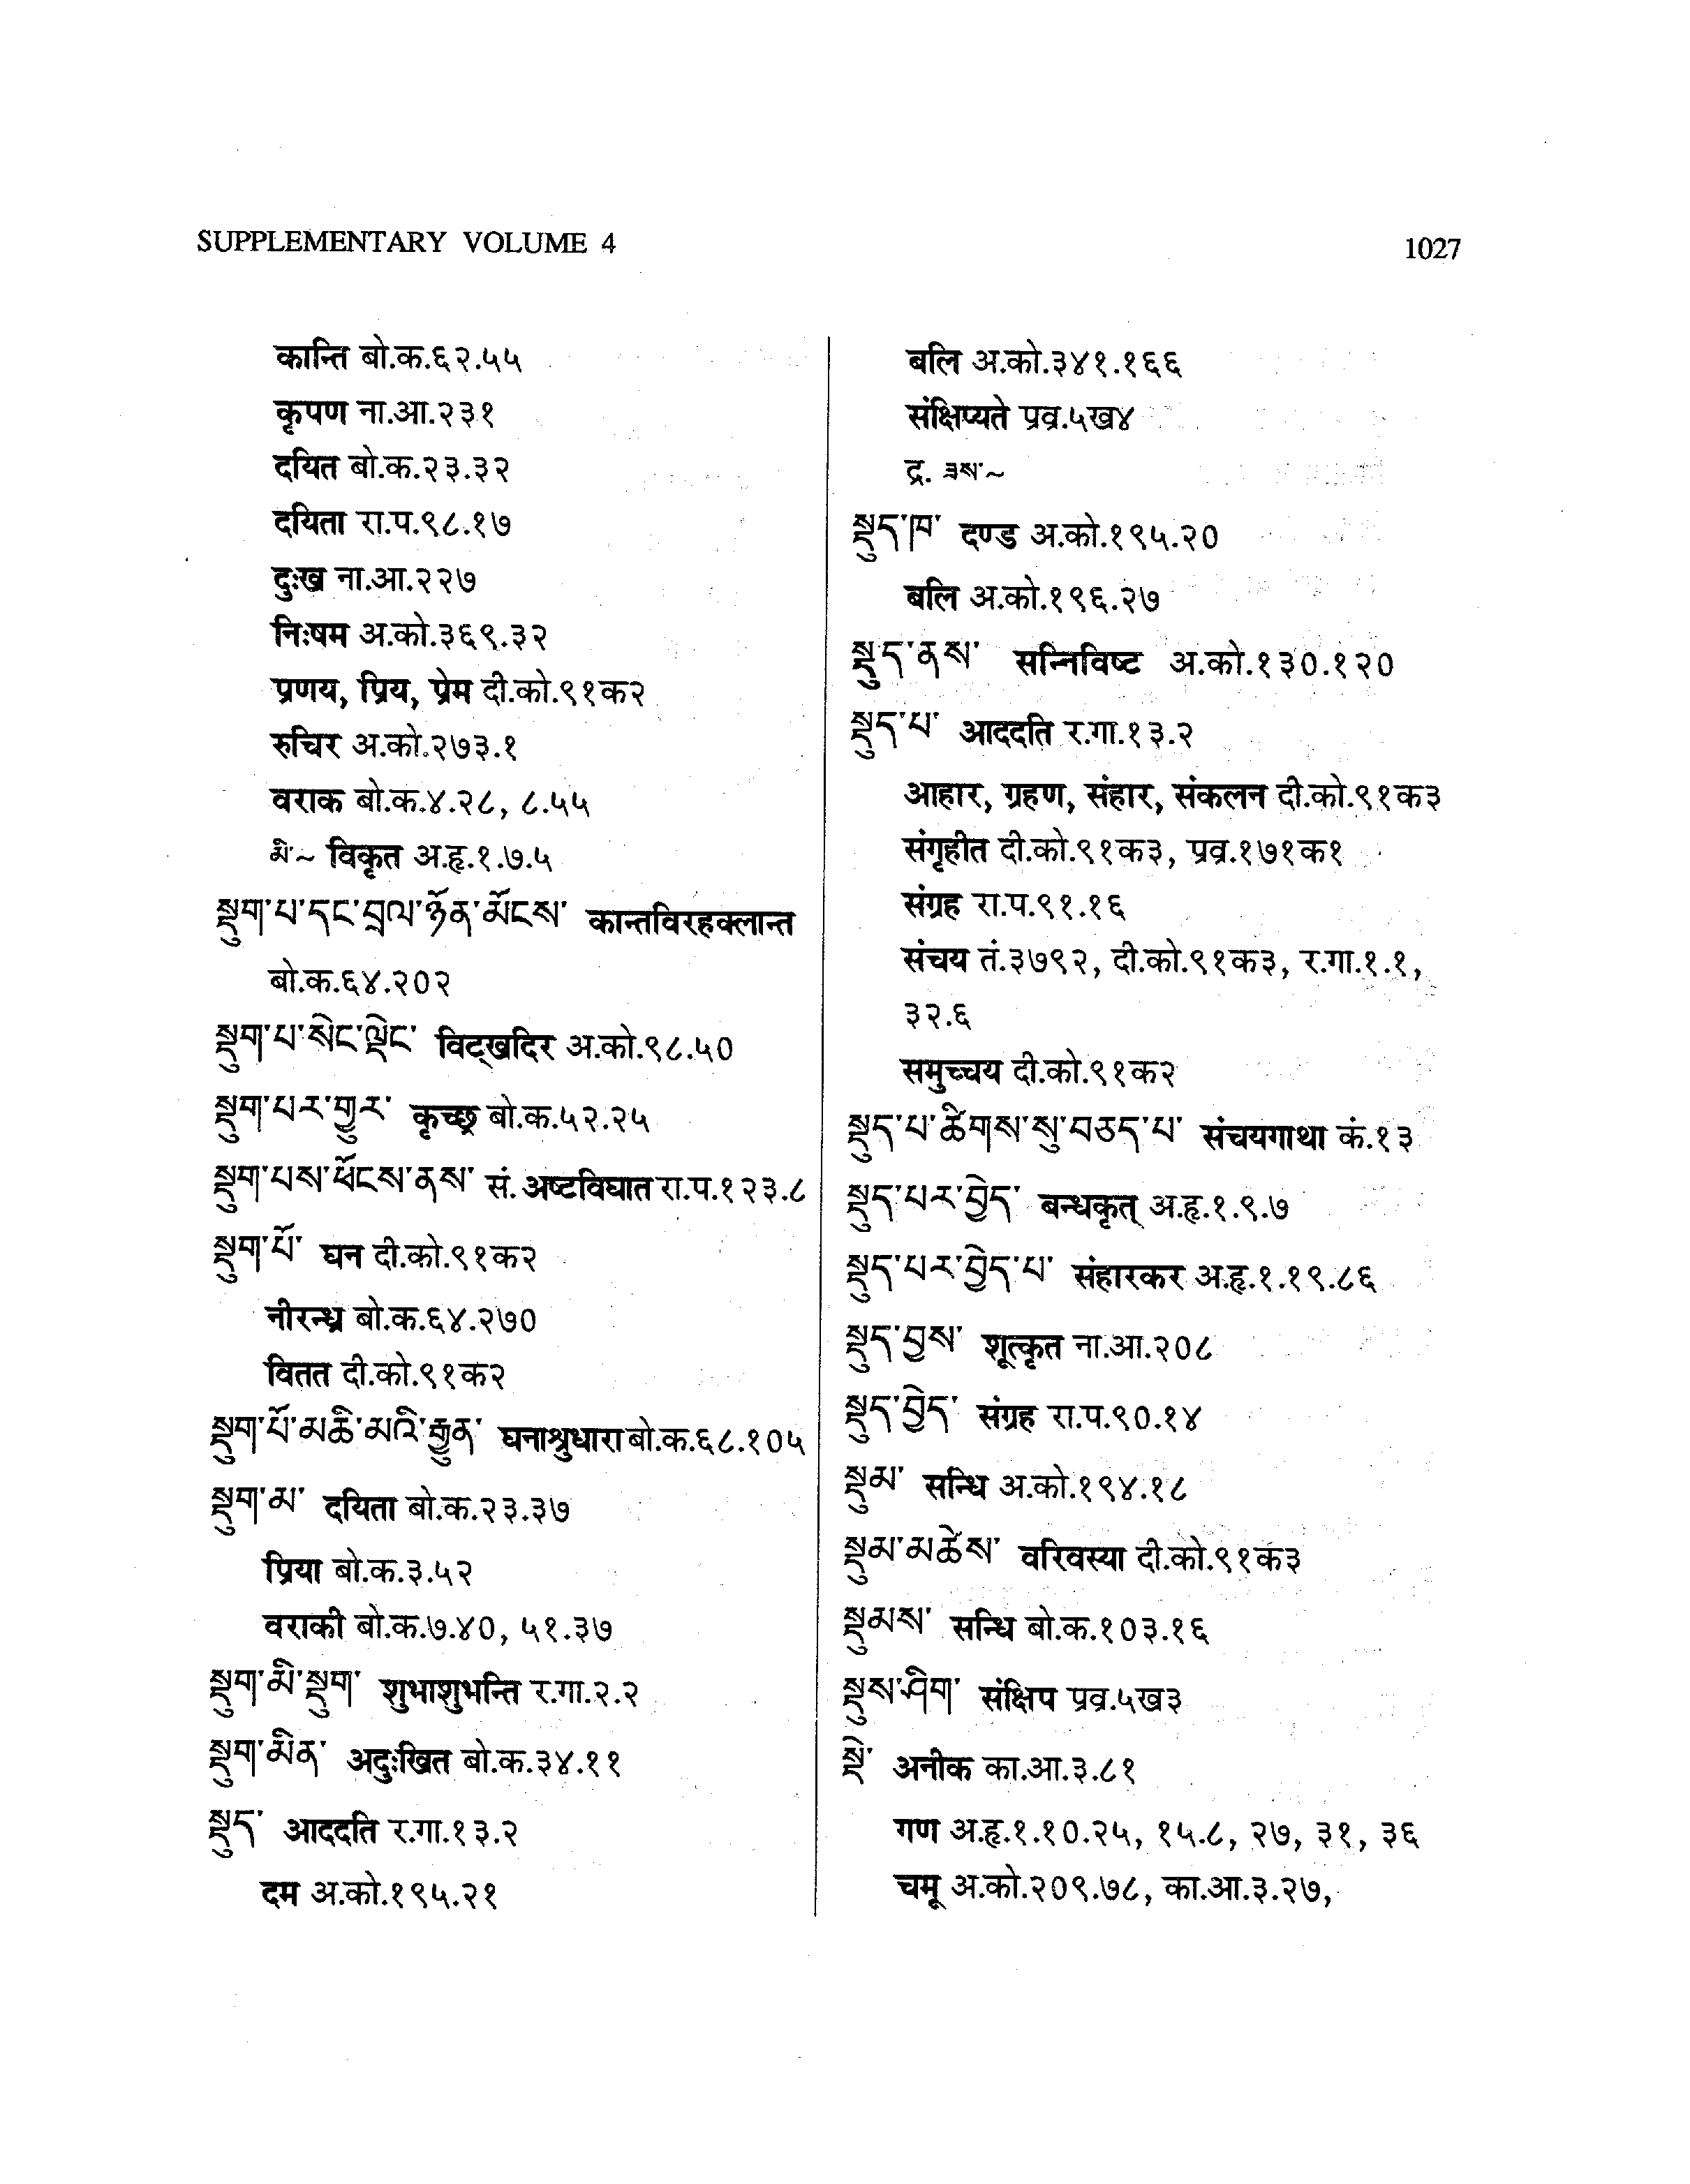 SUPPLEMENTARY VOLUME 4
1027
कान्ति बो.क.६२.५५
कृपण ना.आ.२३१
दयित बो.क.२३.३२
दयिता रा.प.९८.१७
दुःख ना.आ.२२७
निःषम अ.को.३६९.३२
प्रणय, प्रिय, प्रेम दी.को.९१क२
रुचिर अ.को.२७३.१
वराक बो.क.४.२८, ८.५५
མི་~ विकृत अ.हृ.१.७.५
སྡུག་པ་དང་བྲལ་ཉོན་མོངས་ कान्तविरहक्लान्त
बो.क.६४.२०२
སྡུག་པ་སེང་ལྡེང་ विट्खदिर अ.को.९८.५०
སྡུག་པར་གྱུར་ कृच्छ्र बो.क.५२.२५
སྡུག་པས་ཕོངས་ནས་ सं. अष्टविघात रा.प.१२३.८
སྡུག་པོ་ घन दी.को.९१क२
नीरन्ध्र बो.क.६४.२७०
वितत दी.को.९१क२
སྡུག་པོ་མཆི་མའི་རྒྱུན་ घनाश्रुधारा बो.क.६८.१०५
སྡུག་མ་ दयिता बो.क.२३.३७
प्रिया बो.क.३.५२
वराकी बो.क.७.४०, ५१.३७
སྡུག་མི་སྡུག་ शुभाशुभन्ति र.गा.२.२
སྡུག་མིན་ अदुःखित बो.क.३४.११
སྡུད་ आददति र.गा.१३.२
दम अ.को.१९५.२१
बलि अ.को.३४१.१६६
संक्षिप्यते प्रव्र.५ख४
द्र. ཟས་~
སྡུད་ཁ་ दण्ड अ.को.१९५.२०
बलि अ.को.१९६.२७
སྡུད་ནས་ सन्निविष्ट अ.को.१३०.१२०
སྡུད་པ་ आददति र.गा.१३.२
आहार, ग्रहण, संहार, संकलन दी.को.९१क३
संगृहीत दी.को.९१क३, प्रव्र.१७१क१
संग्रह रा.प.९१.१६
संचय तं.३७९२, दी.को.९१क३, र.गा.१.१,
३२.६
समुच्चय दी.को.९१क२
སྡུད་པ་ཚིགས་སུ་བཅད་པ་ संचयगाथा कं.१३
སྡུད་པར་བྱེད་ बन्धकृत् अ.हृ.१.९.७
སྡུད་པར་བྱེད་པ་ संहारकर अ.हृ.१.१९.८६
སྡུད་བྱས་ शूत्कृत ना.आ.२०८
སྡུད་བྱེད་ संग्रह रा.प.९०.१४
སྡུམ་ सन्धि अ.को.१९४.१८
སྡུམ་མཚེས་ वरिवस्या दी.को.९१क३
སྡུམས་ सन्धि बो.क.१०३.१६
སྡུས་ཤིག་ संक्षिप प्रव्र.५ख३
སྡེ་ अनीक का.आ.३.८१
गण अ.हृ.१.१०.२५, १५.८, २७, ३१, ३६
चमू अ.को.२०९.७८, का.आ.३.२७,